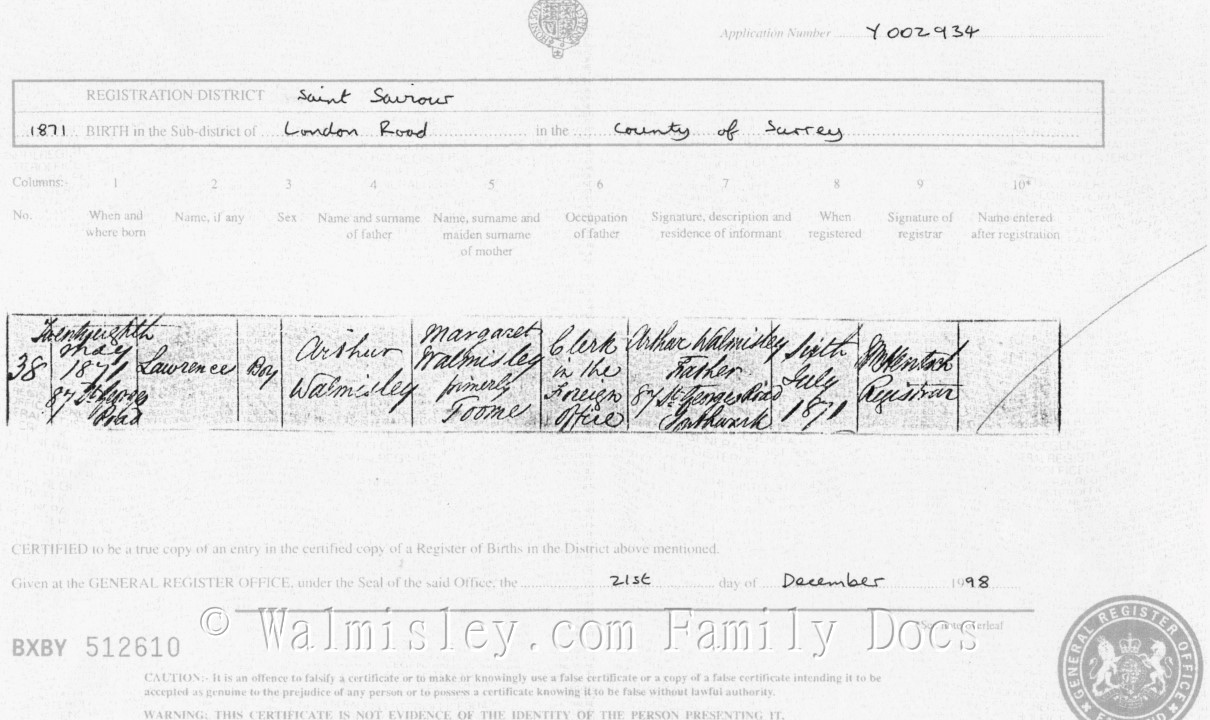 Application Number Y002934
REGISTRATION DISTRICT Saint Saviour
1871 BIRTH in the Sub-district of London Road in the County of Surrey
Columns:- 1 2 3 4 5 6 7 8 9 10*
No. When and where born Name, if any Sex Name and surname of father Name, surname and maiden surname of mother Occupation of father Signature, description and residence of informant When registered Signature of registrar Name entered after registration
38
Twentyeighth
May
1871
87 St Georges
Road
Lawrence
Boy
Arthur
Walmisley
Margaret
Walmisley
formerly
Toome
Clerk
in the
Foreign
Office
Arthur Walmisley
Father
87 St Georges Road
Southwark
Sixth
July
1871
Registrar
CERTIFIED to be a true copy of an entry in the certified copy of a Register of Births in the District above mentioned.
Given at the GENERAL REGISTER OFFICE, under the Seal of the said Office, the 21st day of December 1998
© Walmisley.com Family Docs
*See note overleaf
BXBY 512610
GENERAL REGISTER OFFICE
CAUTION:- It is an offence to falsify a certificate or to make or knowingly use a false certificate or a copy of a false certificate intending it to be
accepted as genuine to the prejudice of any person or to possess a certificate knowing it to be false without lawful authority.
WARNING: THIS CERTIFICATE IS NOT EVIDENCE OF THE IDENTITY OF THE PERSON PRESENTING IT.